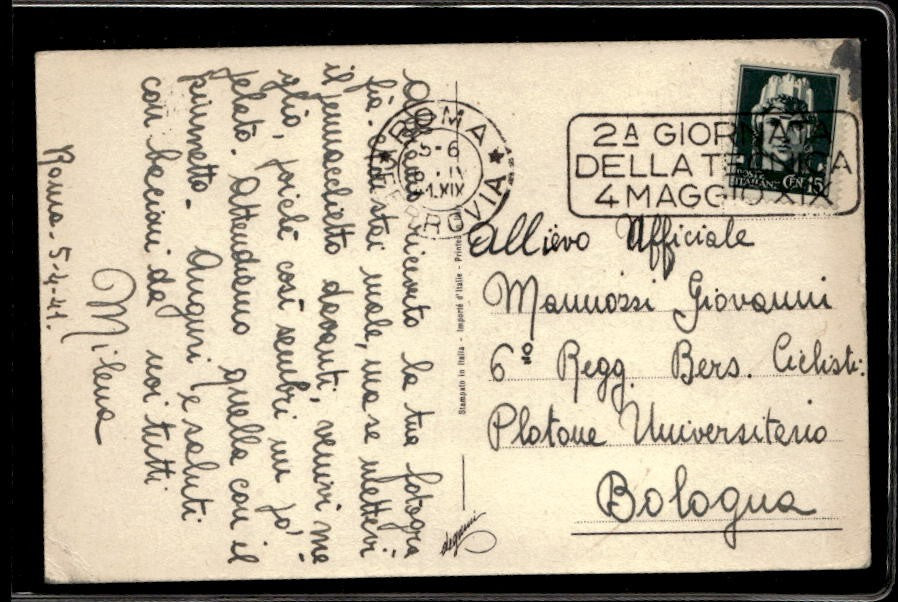 Abbiamo ricevuto la tua fotogra
fia. stai male, ma se mettevi
il pennacchietto davanti, venivi me
glio, poichè così sembri un po'
pelato. Attendiamo quella con il
piumetto. Auguri e saluti
con bacioni da noi tutti
Milena
Roma - 5-4-41.
ROMA
FERROVIA
5-6
IV
XIX
2A GIORNATA
DELLA TECNICA
4 MAGGIO XIX
POSTE
ITALIANE
CEN. 15
Stampato in Italia - Importé d'Italie - Printed
degami
Allievo Ufficiale
Mannozzi Giovanni
6º Regg. Bers. Ciclisti
Plotone Universitario
Bologna